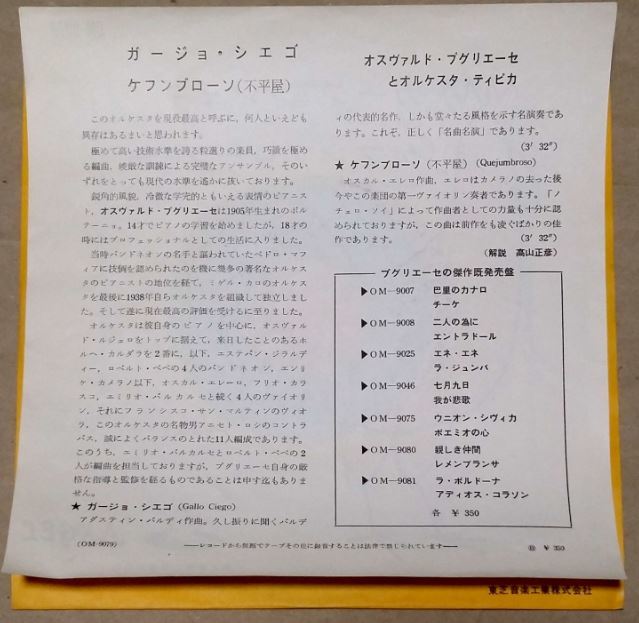 ガージョ・シエゴ
ケフンブローソ(不平屋)
オスヴァルド・プグリエーセ
とオルケスタ・ティピカ
このオルケスタを現役最高と呼ぶに,何人といえども
異存はあるまいと思われます。
極めて高い技術水準を誇る粒選りの楽員,巧緻を極め
る編曲,峻厳な訓練による完璧なアンサンブル,そのい
ずれをとっても現代の水準を遙かに抜いております。
鋭角的風貌,冷徹な学究的ともいえる表情のピアニス
ト,オスヴァルド・プグリエーセは1905年生まれのポル
テーニョ。14才でピアノの学習を始めましたが,18才の
時にはプロフェッショナルとしての生活に入りました。
当時バンドネオンの名手と謳われていたペドロ・マフ
ィアに技倆を認められたのを機に幾多の著名なオルケス
タのピアニストの地位を経て,ミゲル・カロのオルケス
タを最後に1938年自らオルケスタを組織して独立しまし
た。そして遂に現在最高の評価を受けるに至りました。
オルケスタは彼自身のピアノを中心に,オスヴァル
ド・ルジェロをトップに据えて,来日したことのあるホ
ルヘ・カルダラを2番に,以下,エステバン・ジラルデ
ィー,ロベルト・ペペの4人のバンドネオン,エンリ
ケ・カメラノ以下,オスカル・エレーロ,フリオ・カラ
スコ,エミリオ・バルカルセと続く4人のヴァイオリ
ン,それにフランシスコ・サン・マルティンのヴィオ
ラ,このオルケスタの名物男アニセト・ロシのコントラ
バス,誠によくバランスのとれた11人編成であります。
このうち,エミリオ・バルカルセとロベルト・ペペの2
人が編曲を担当しておりますが,プグリエーセ自身の厳
格な指導と監修を経るものであることは申す迄もありま
せん。
★ ガージョ・シエゴ (Gallo Ciego)
アグスティン・バルディ作曲。久し振りに聞くバルデ
ィの代表的名作,しかも堂々たる風格を示す名演奏であ
ります。これぞ,正しく「名曲名演」であります。
(3′ 32″)
★ ケフンブローソ (不平屋) (Quejumbroso)
オスカル・エレロ作曲,エレロはカメラノの去った後
今やこの楽団の第一ヴァイオリン奏者であります。「ノ
チェロ・ソイ」によって作曲者としての力量も十分に認
められておりますが,この曲は前作をも凌ぐばかりの佳
作であります。 (3′ 32″)
(解説 高山正彦)
プグリエーセの傑作既発売盤
▶OM—9007 巴里のカナロ
チーケ
▶OM—9008 二人の為に
エントラドール
▶OM—9025 エネ・エネ
ラ・ジュンバ
▶OM—9046 七月九日
我が悲歌
▶OM—9075 ウニオン・シヴィカ
ボエミオの心
▶OM—9080 親しき仲間
レメンブランサ
▶OM—9081 ラ・ボルドーナ
アディオス・コラソン
各 ¥ 350
(OM-9079) ——レコードから無断でテープその他に録音することは法律で禁じられています——
¥ 350
東芝音楽工業株式会社